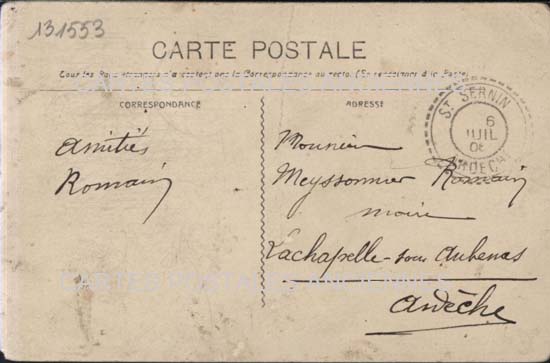 131553
CARTE POSTALE
Tous les Pays étrangers n'acceptent pas la Correspondance au recto. (Se renseigner à la Poste)
CORRESPONDANCE
ADRESSE
ST SERNIN
6
JUIL
ARDECHE
Amitiés
Romain
Monsieur
Meyssonnier Romain
maire
Lachapelle-sous Aubenas
Ardèche
CARTES POSTALES ANCIENNES